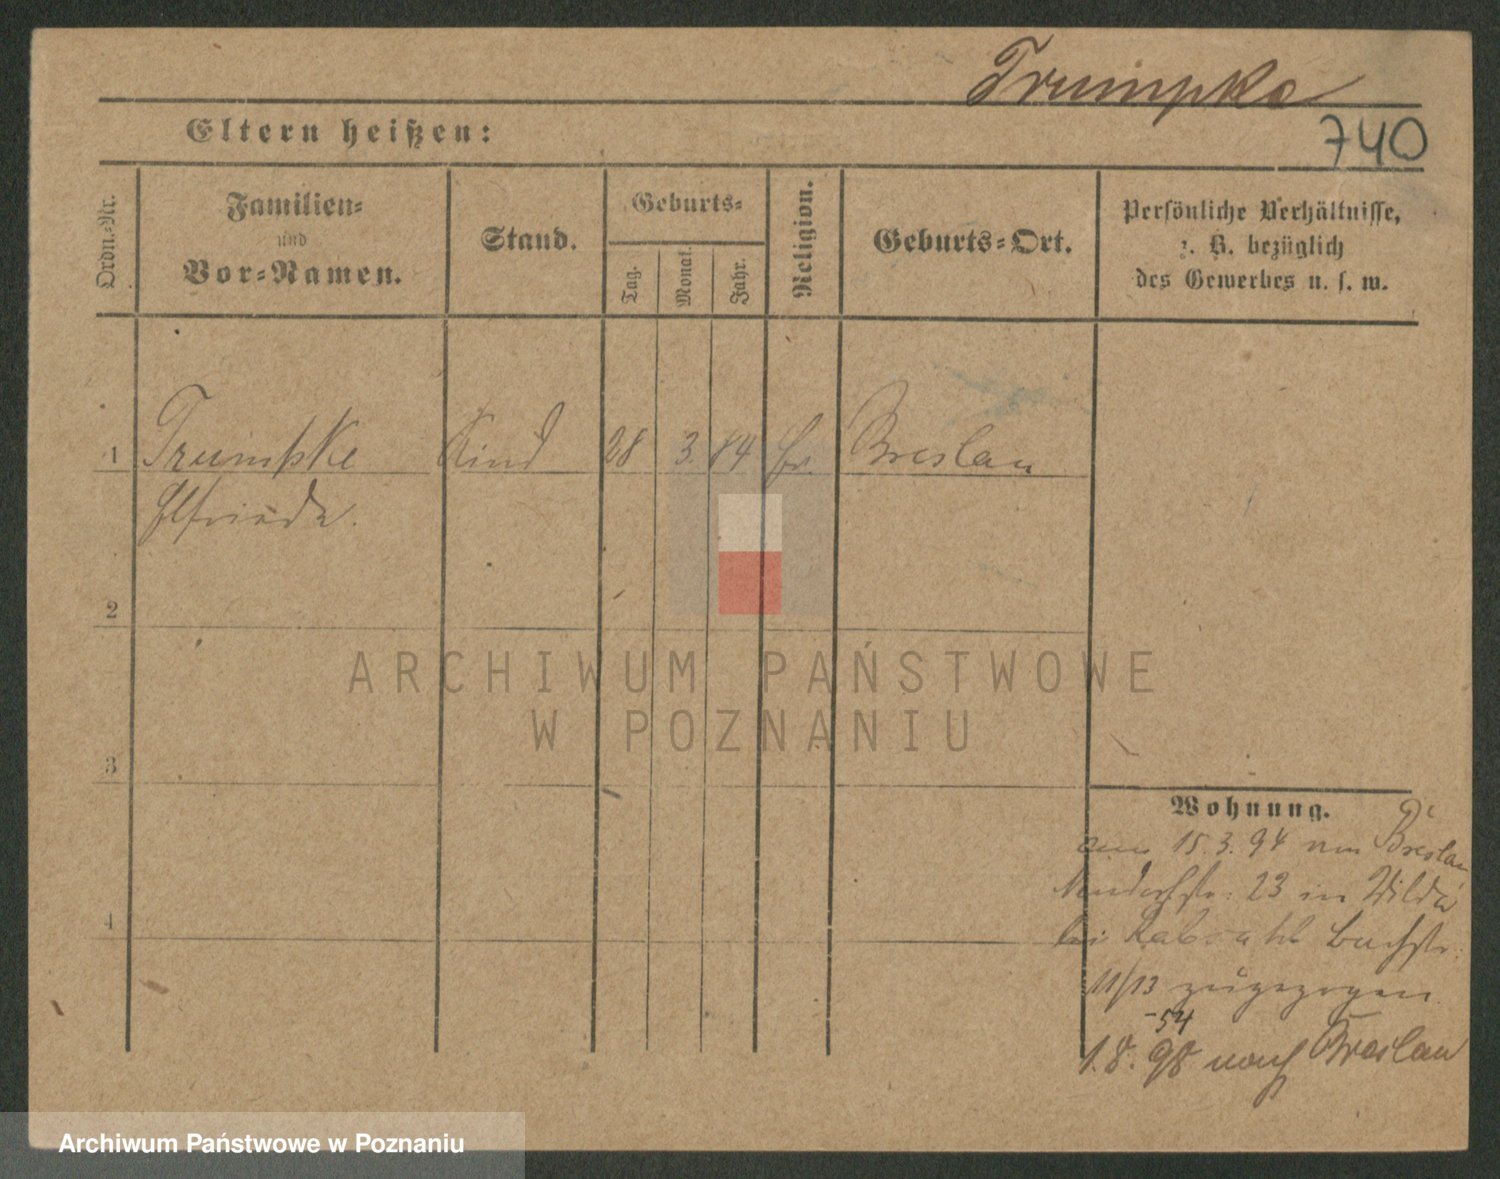 Trumpke
740
Eltern heißen:
Ordn.-Nr.
Familien-
und
Vor-Namen.
Stand.
Geburts-
Tag.
Monat.
Jahr.
Religion.
Geburts-Ort.
Persönliche Verhältnisse,
z. B. bezüglich
des Gewerbes u. s. w.
1 Trumpke Kind 28 3. 84 Breslau
Elfriede.
2
3
4
Wohnung.
am 15.3.94 von Breslau
23 in Wilda
bei Bachstr.
11/13 zugezogen
-54
1.8.98 nach Breslau
ARCHIWUM PAŃSTWOWE
W POZNANIU
Archiwum Państwowe w Poznaniu